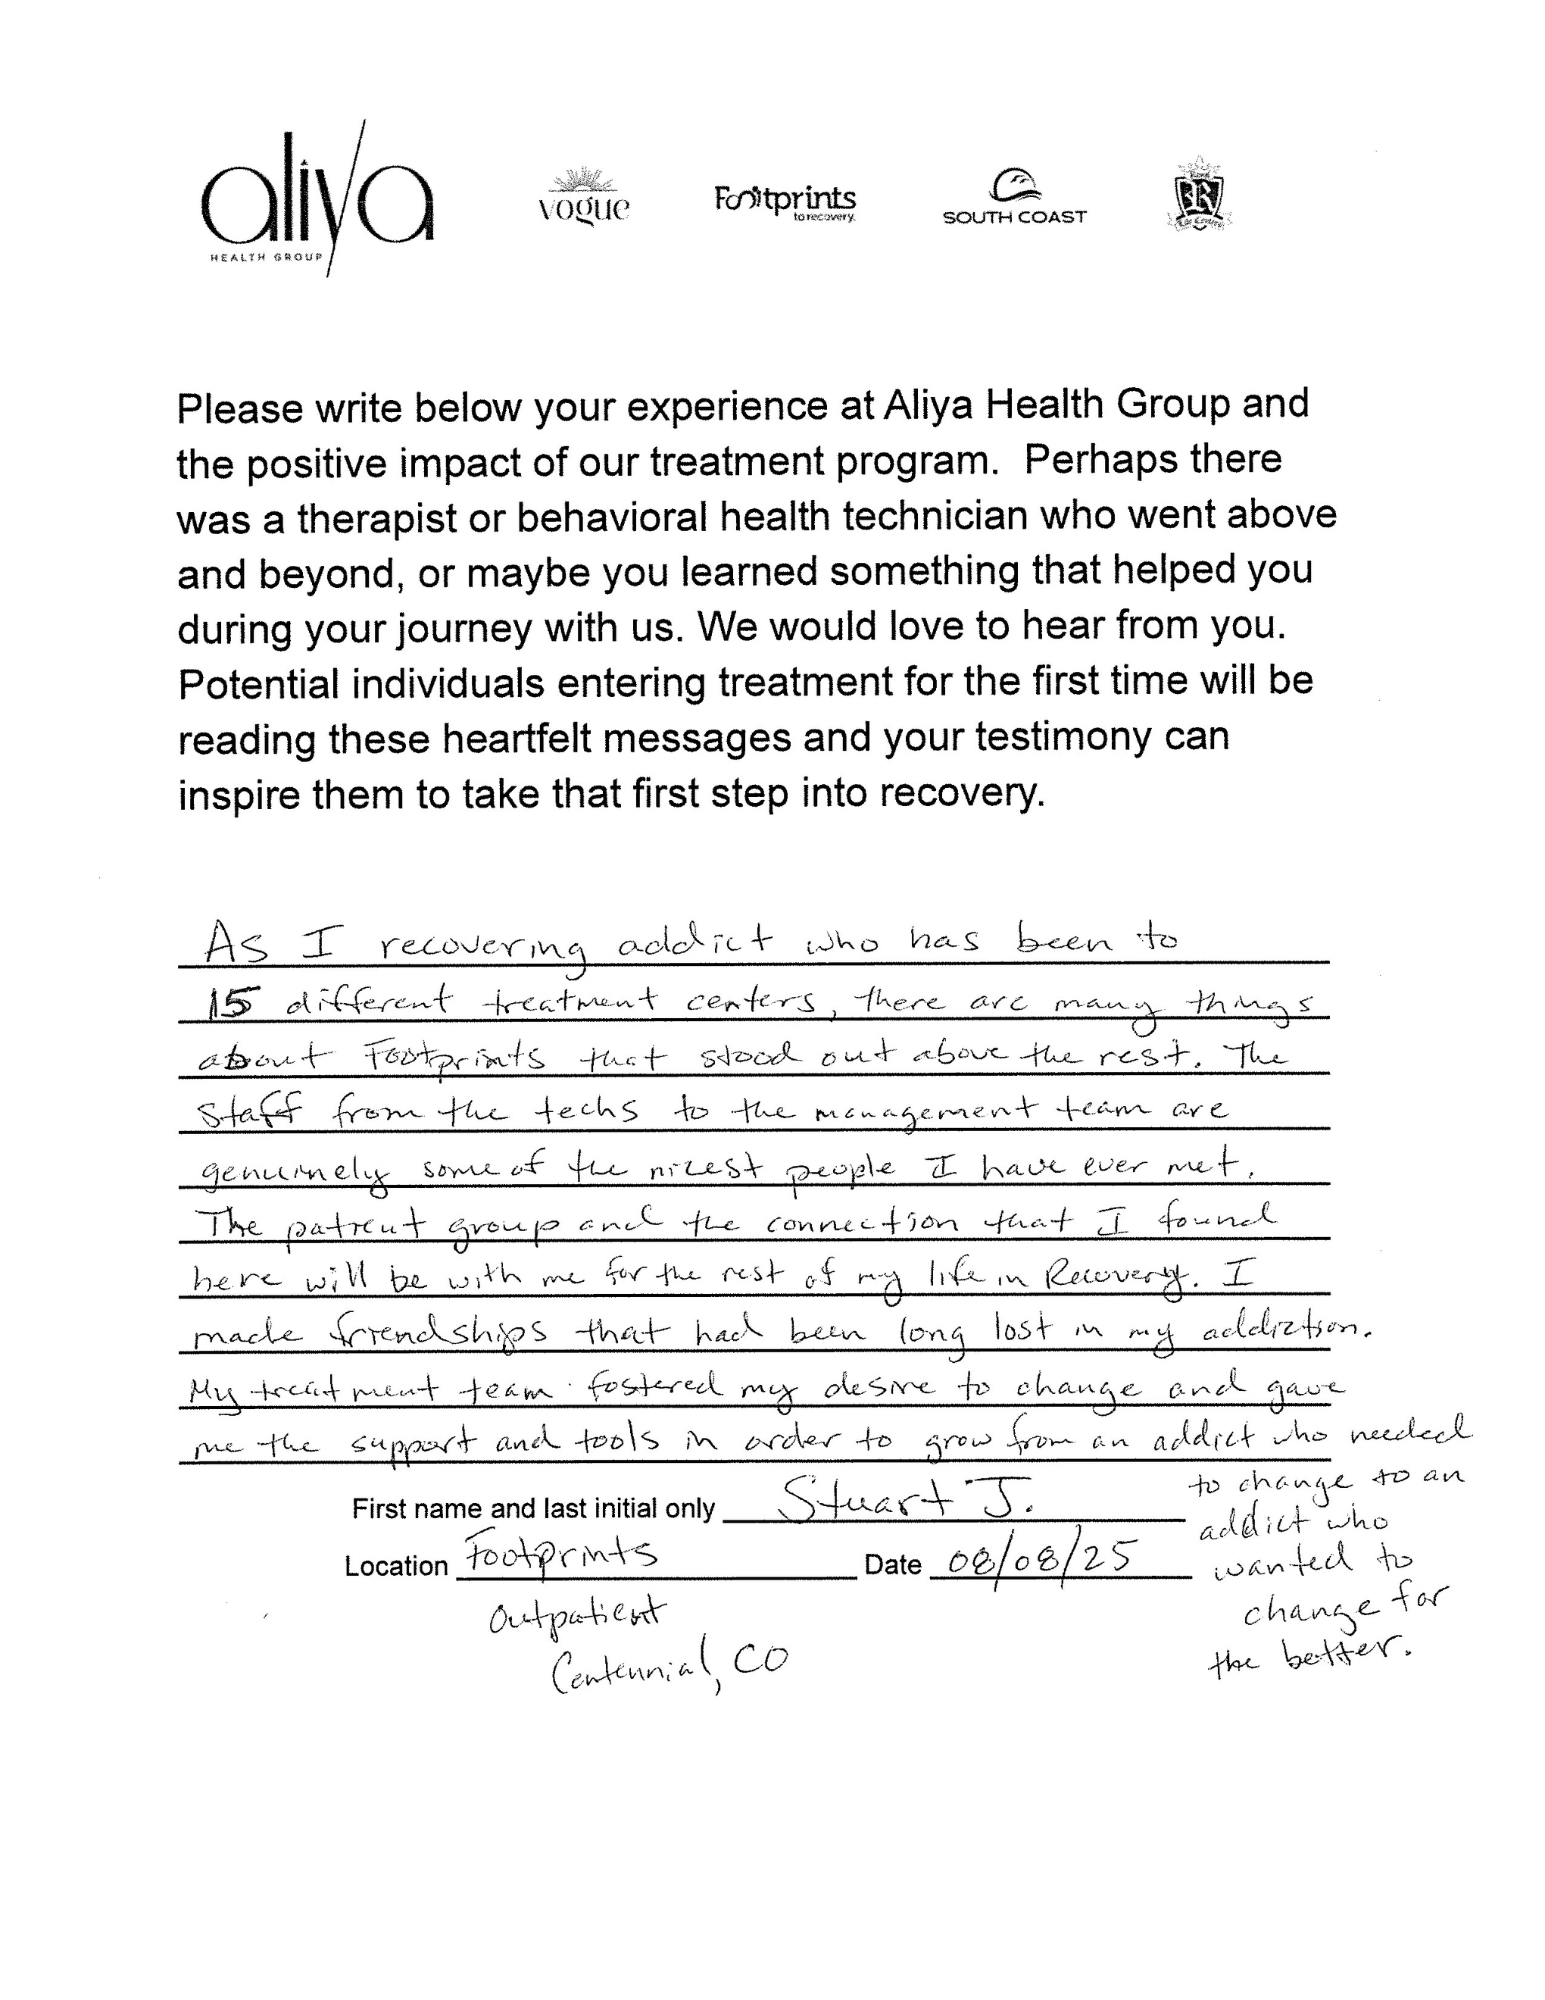 aliya
HEALTH GROUP
vogue
Footprints
to recovery.
SOUTH COAST
R
Please write below your experience at Aliya Health Group and
the positive impact of our treatment program.  Perhaps there
was a therapist or behavioral health technician who went above
and beyond, or maybe you learned something that helped you
during your journey with us. We would love to hear from you.
Potential individuals entering treatment for the first time will be
reading these heartfelt messages and your testimony can
inspire them to take that first step into recovery.
As I recovering addict who has been to
15 different treatment centers, there are many things
about Footprints that stood out above the rest. The
staff from the techs to the management team are
genuinely some of the nicest people I have ever met.
The patient group and the connection that I found
here will be with me for the rest of my life in Recovery. I
made friendships that had been long lost in my addiction.
My treatment team fostered my desire to change and gave
me the support and tools in order to grow from an addict who needed
to change to an
addict who
wanted to
change for
the better.
First name and last initial only Stuart J.
Location Footprints Date 08/08/25
Outpatient
Centennial, CO